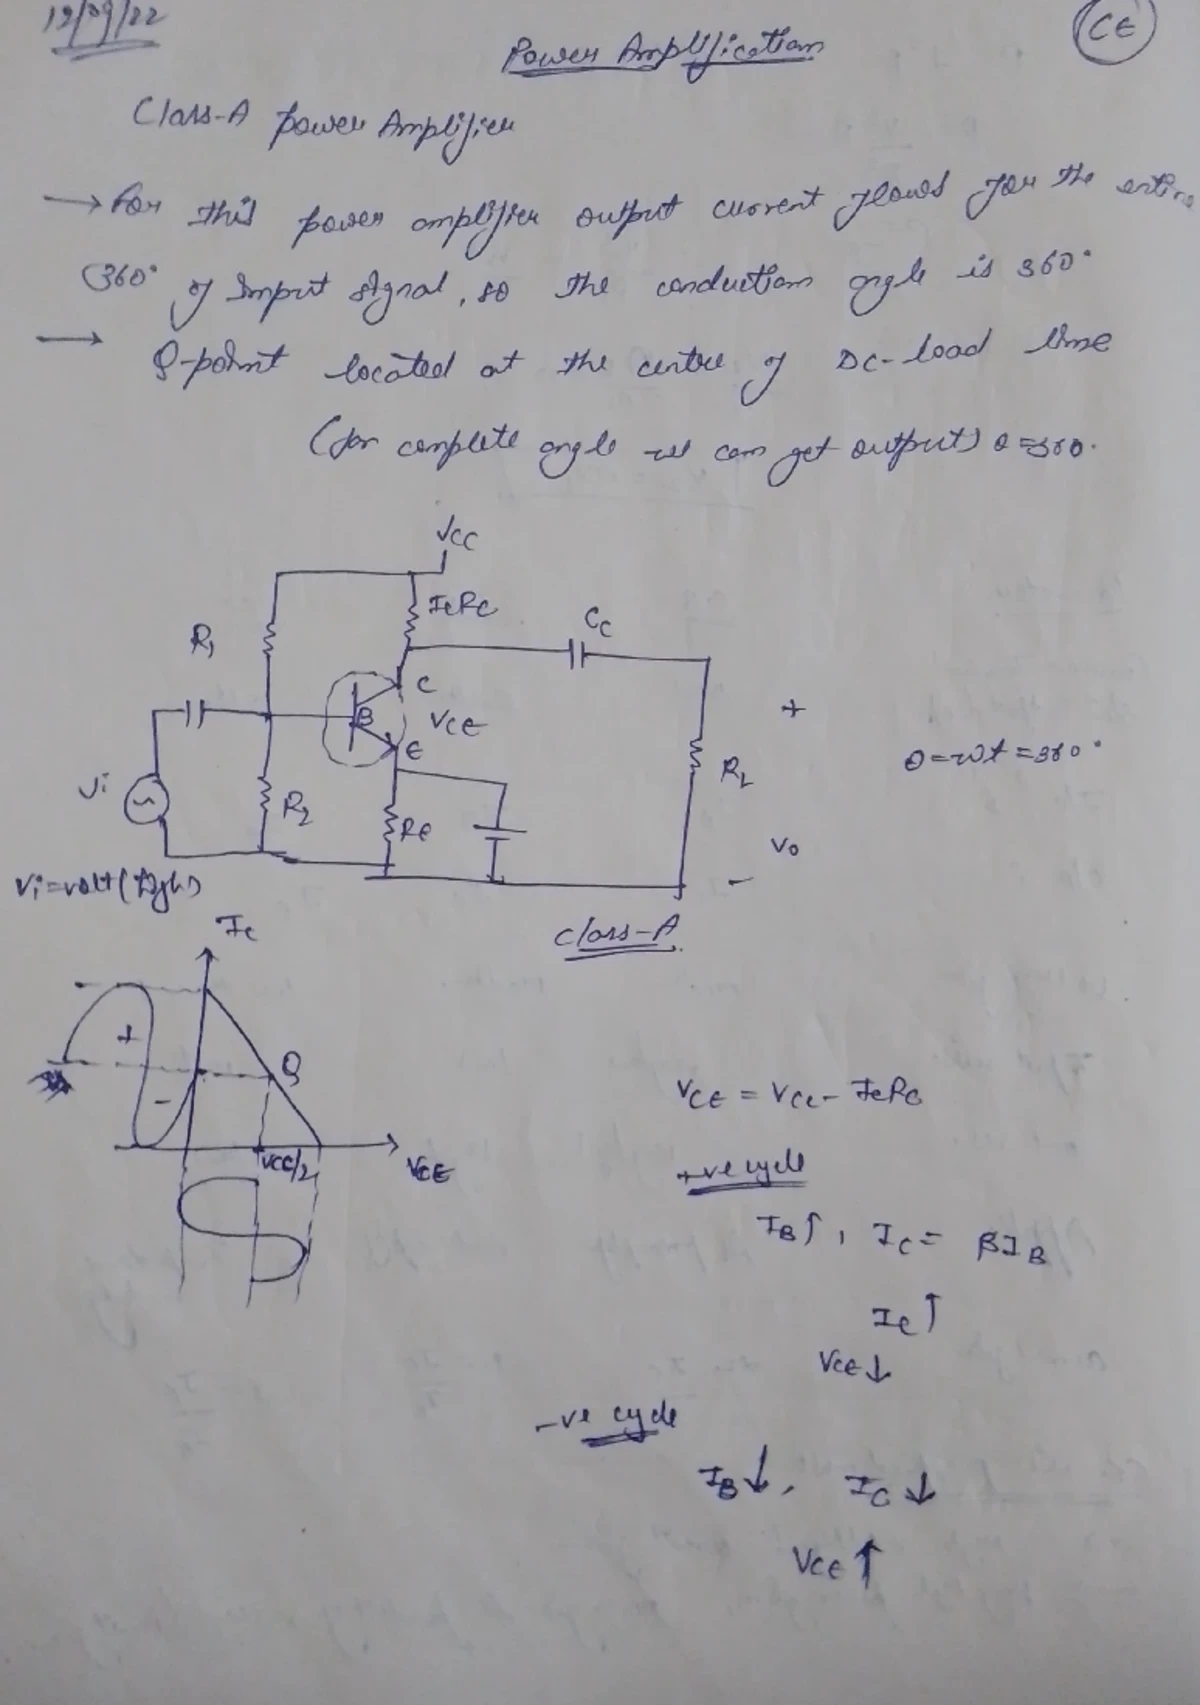 19/09/22
CE
Power Amplification
Class-A power Amplifier
→ For this power amplifier output current flows for the entire
360° of Input signal, so the conduction angle is 360°
→ Q-point located at the centre of DC-load line
(for complete angle we can get output) θ=360.
VCC
ICRC
CC
R1
C
B
VCE
E
+
θ=wt=360°
RL
Vi
R2
RE
Vo
-
Vi=volt(
IC
Class-A
+
Q
-
VCE = VCC - ICRC
VCC/2
VCE
+ve cycle
IB↑, IC= βIB
IC↑
VCE↓
-ve cycle
IB↓, IC↓
VCE↑